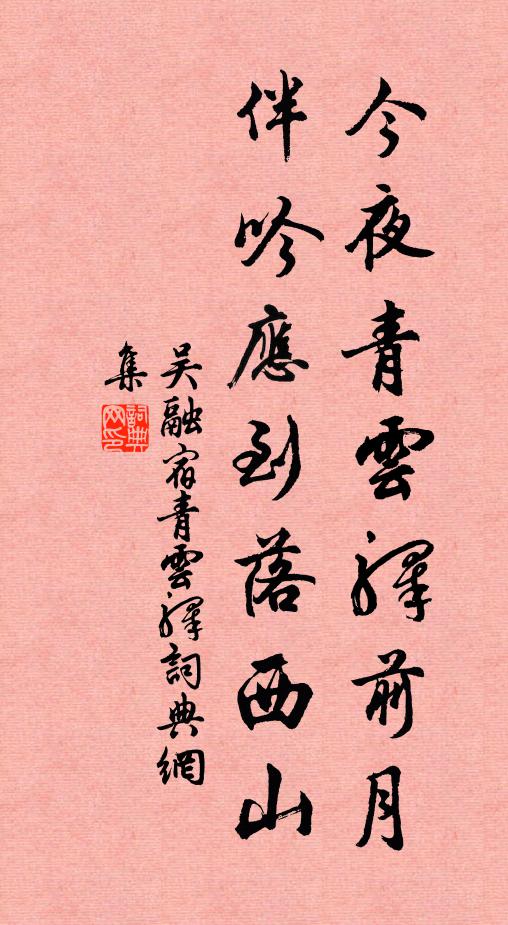 今夜青雲驛前月
伴吟應到落西山
吴融宿青雲驛詞典網
集
詞典
网印